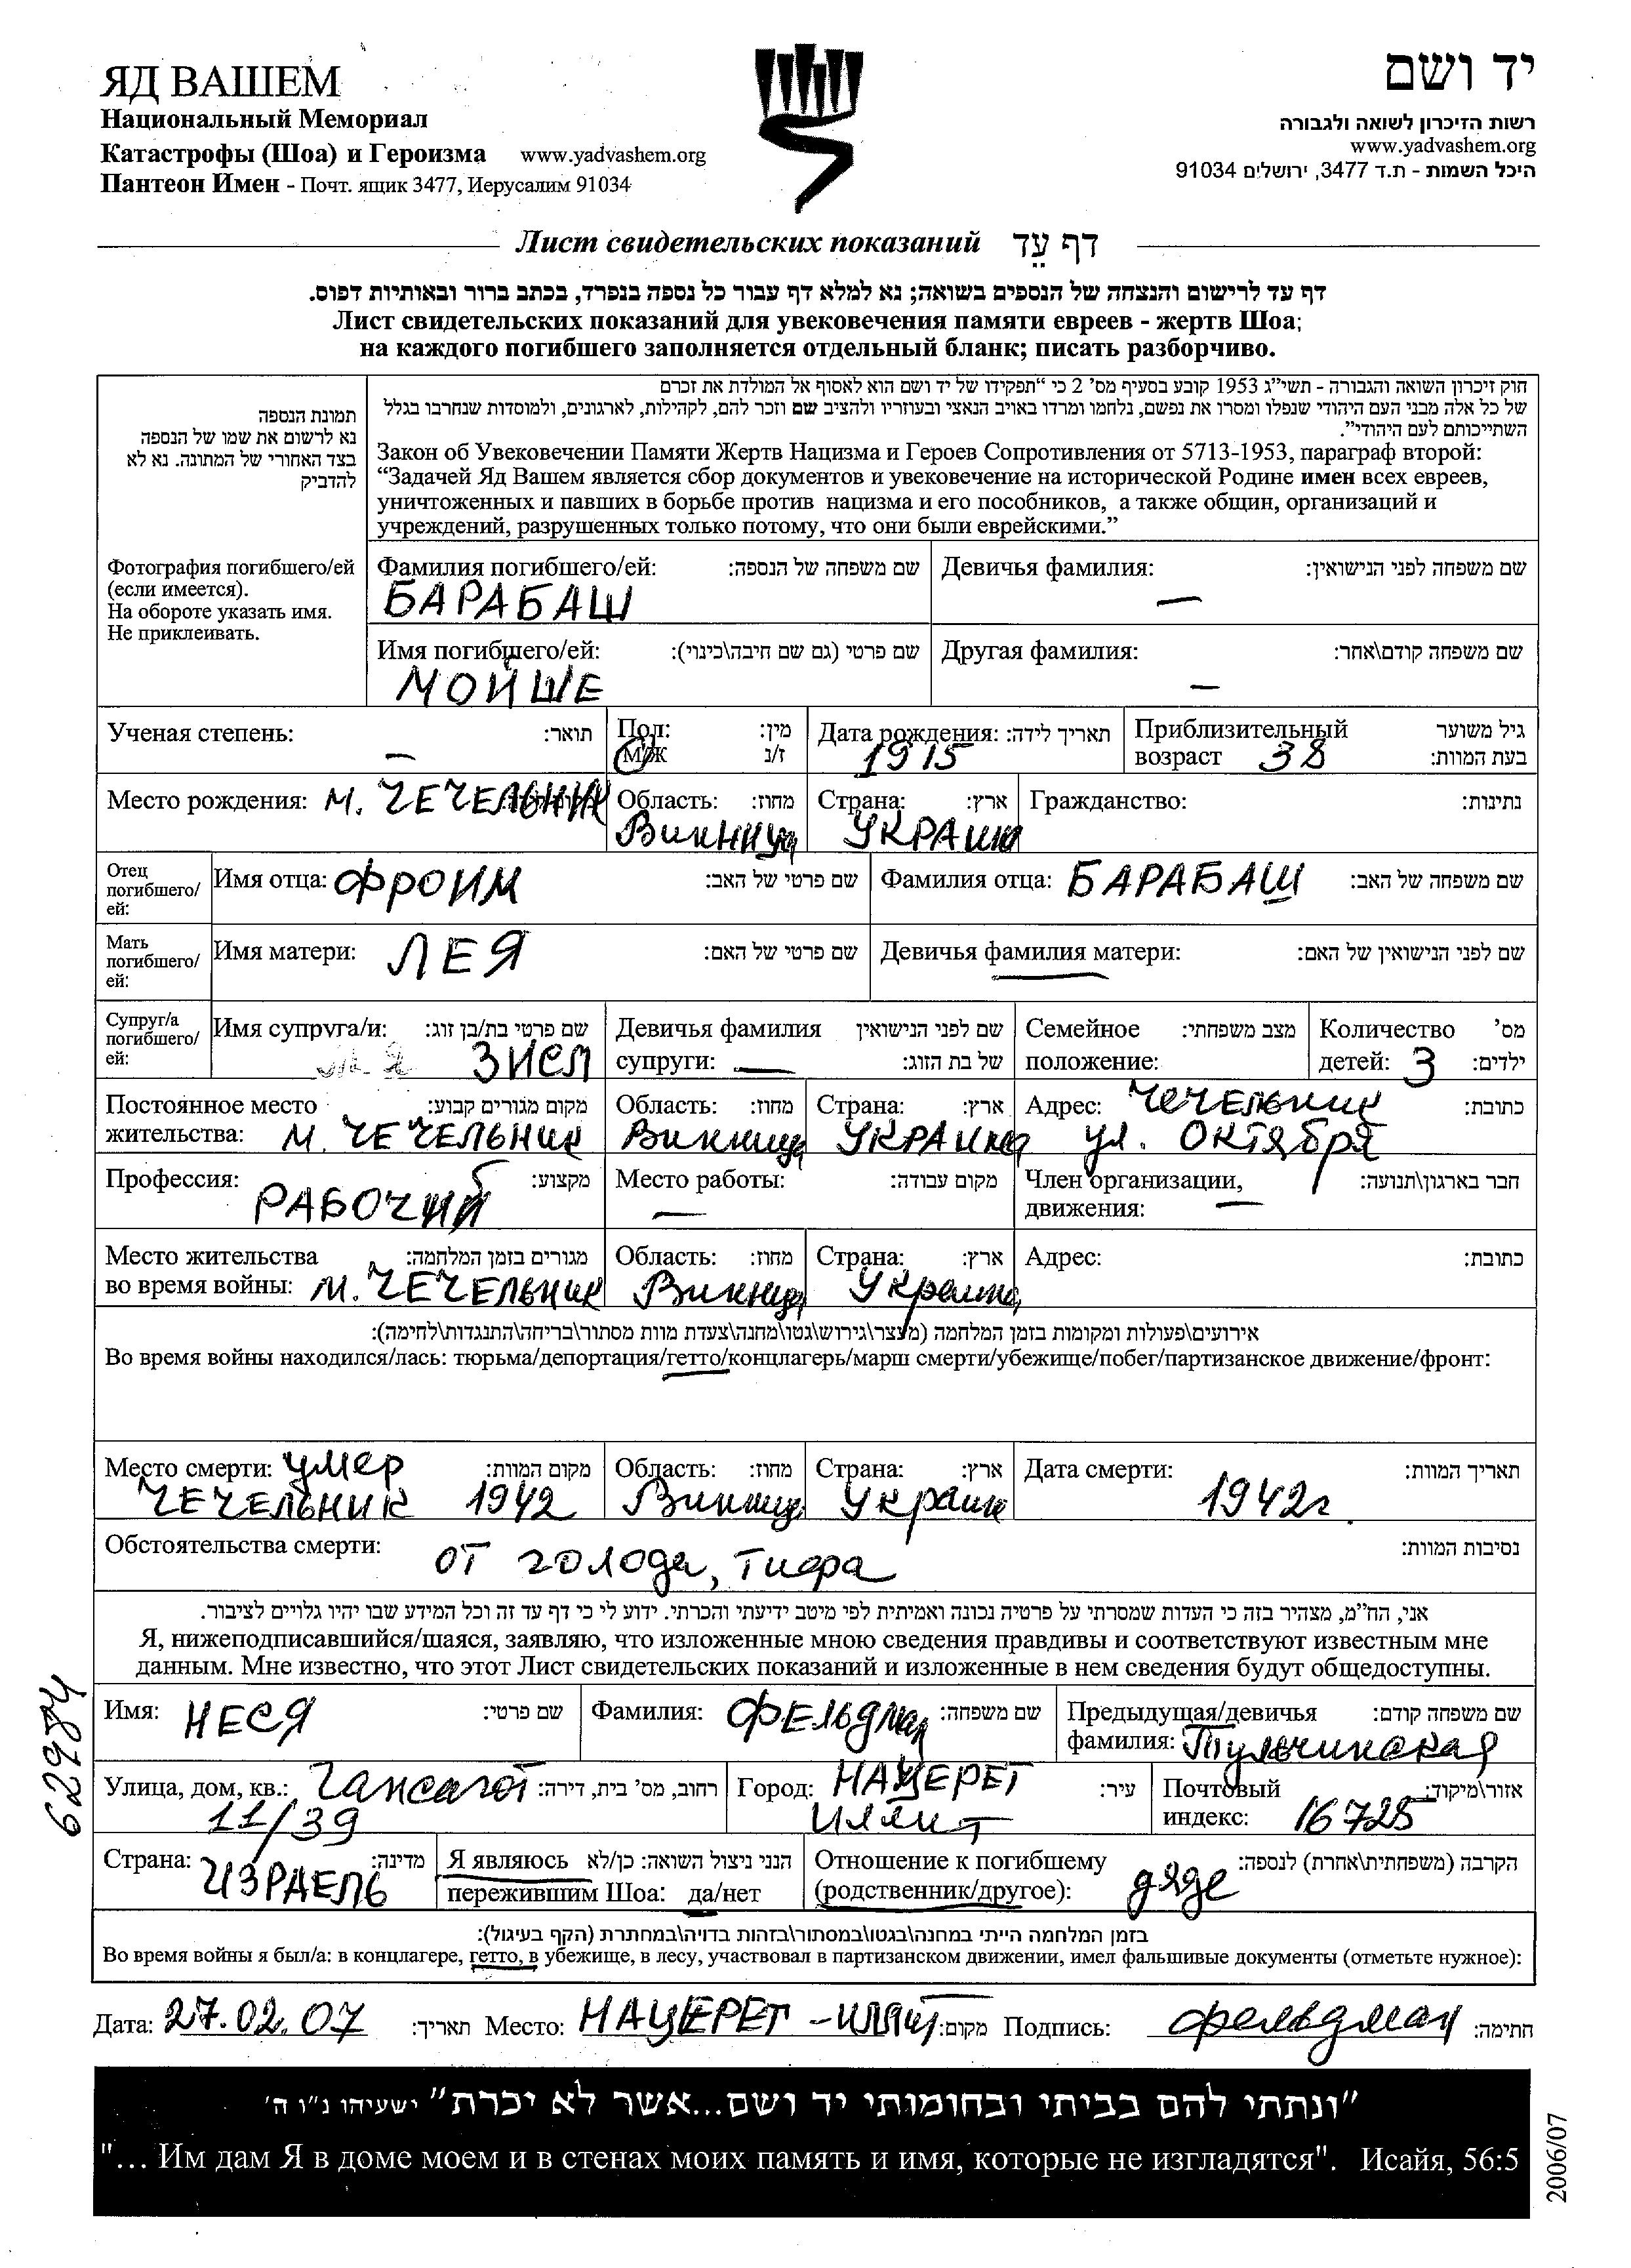 ЯД ВАШЕМ
Национальный Мемориал
Катастрофы (Шоа) и Героизма www.yadvashem.org
Пантеон Имен - Почт. ящик 3477, Иерусалим 91034
יד ושם
רשות הזיכרון לשואה ולגבורה
www.yadvashem.org
היכל השמות - ת.ד 3477, ירושלים 91034
Лист свидетельских показаний דף עֵד
דף עד לרישום והנצחה של הנספים בשואה; נא למלא דף עבור כל נספה בנפרד, בכתב ברור ובאותיות דפוס.
Лист свидетельских показаний для увековечения памяти евреев - жертв Шоа;
на каждого погибшего заполняется отдельный бланк; писать разборчиво.
תמונת הנספה
נא לרשום את שמו של הנספה
בצד האחורי של המתונה. נא לא
להדביק
Фотография погибшего/ей
(если имеется).
На обороте указать имя.
Не приклеивать.
חוק זיכרון השואה והגבורה - תשי"ג 1953 קובע בסעיף מס' 2 כי "תפקידו של יד ושם הוא לאסוף אל המולדת את זכרם
של כל אלה מבני העם היהודי שנפלו ומסרו את נפשם, נלחמו ומרדו באויב הנאצי ובעוזריו ולהציב שם וזכר להם, לקהילות, לארגונים, ולמוסדות שנחרבו בגלל
השתייכותם לעם היהודי".
Закон об Увековечении Памяти Жертв Нацизма и Героев Сопротивления от 5713-1953, параграф второй:
“Задачей Яд Вашем является сбор документов и увековечение на исторической Родине имен всех евреев,
уничтоженных и павших в борьбе против нацизма и его пособников, а также общин, организаций и
учреждений, разрушенных только потому, что они были еврейскими.”
Фамилия погибшего/ей: שם משפחה של הנספה:
БАРАБАШ
Девичья фамилия: שם משפחה לפני הנישואין:
—
Имя погибшего/ей: שם פרטי (גם שם חיבה\כינוי):
МОЙШЕ
Другая фамилия: שם משפחה קודם\אחר:
—
Ученая степень: תואר:
—
Пол: מין:
М/Ж ז/נ
Дата рождения: תאריך לידה:
1915
Приблизительный גיל משוער
возраст 38 בעת המוות:
Место рождения: м. ЧЕЧЕЛЬНИК
Область: מחוז:
Винница
Страна: ארץ:
УКРАИНА
Гражданство: נתינות:
Отец
погибшего/
ей:
Имя отца: ФРОИМ שם פרטי של האב:
Фамилия отца: БАРАБАШ שם משפחה של האב:
Мать
погибшего/
ей:
Имя матери: ЛЕЯ שם פרטי של האם:
Девичья фамилия матери: שם לפני הנישואין של האם:
Супруг/а
погибшего/
ей:
Имя супруга/и: שם פרטי בת/בן זוג:
ЗИСЛ
Девичья фамилия שם לפני הנישואין
супруги: — של בת הזוג:
Семейное מצב משפחתי:
положение:
Количество מס'
детей: 3 ילדים:
Постоянное место מקום מגורים קבוע:
жительства: м. ЧЕЧЕЛЬНИК
Область: מחוז:
Винница
Страна: ארץ:
УКРАИНА
Адрес: ЧЕЧЕЛЬНИК כתובת:
ул. ОКТЯБРЯ
Профессия: РАБОЧИЙ מקצוע:
Место работы: מקום עבודה:
—
Член организации, חבר בארגון\תנועה:
движения: —
Место жительства מגורים בזמן המלחמה:
во время войны: м. ЧЕЧЕЛЬНИК
Область: מחוז:
Винница
Страна: ארץ:
Украина
Адрес: כתובת:
אירועים\פעולות ומקומות בזמן המלחמה (מעצר\גירוש\גטו\מחנה\צעדת מוות מסתור\בריחה\התנגדות\לחימה):
Во время войны находился/лась: тюрьма/депортация/гетто/концлагерь/марш смерти/убежище/побег/партизанское движение/фронт:
Место смерти: умер מקום המוות:
ЧЕЧЕЛЬНИК 1942
Область: מחוז:
Винница
Страна: ארץ:
Украина
Дата смерти: תאריך המוות:
1942г.
Обстоятельства смерти: от голода, тифа נסיבות המוות:
אני, הח"מ, מצהיר בזה כי העדות שמסרתי על פרטיה נכונה ואמיתית לפי מיטב ידיעתי והכרתי. ידוע לי כי דף עד זה וכל המידע שבו יהיו גלויים לציבור.
Я, нижеподписавшийся/шаяся, заявляю, что изложенные мною сведения правдивы и соответствуют известным мне
данным. Мне известно, что этот Лист свидетельских показаний и изложенные в нем сведения будут общедоступны.
Имя: НЕСЯ שם פרטי:
Фамилия: ФЕЛЬДМАН שם משפחה:
Предыдущая/девичья שם משפחה קודם:
фамилия: Тульчинская
Улица, дом, кв.: רחוב, מס' בית, דירה:
11/39
Город: НАЦЕРЕТ עיר:
ИЛЛИТ
Почтовый אזור\מיקוד:
индекс: 16725
Страна: ИЗРАЕЛЬ מדינה:
Я являюсь הנני ניצול השואה: כן/לא
пережившим Шоа: да/нет
Отношение к погибшему הקרבה (משפחתית\אחרת) לנספה:
(родственник/другое): дяде
בזמן המלחמה הייתי במחנה\בגטו\במסתור\בזהות בדויה\במחתרת (הקף בעיגול):
Во время войны я был/а: в концлагере, гетто, в убежище, в лесу, участвовал в партизанском движении, имел фальшивые документы (отметьте нужное):
Дата: 27.02.07 תאריך: Место: НАЦЕРЕТ-ИЛЛИТ מקום: Подпись: Фельдман חתימה:
"ונתתי להם בביתי ובחומותי יד ושם...אשר לא יכרת" ישעיהו נ"ו ה'
"... Им дам Я в доме моем и в стенах моих память и имя, которые не изгладятся". Исайя, 56:5
2006/07